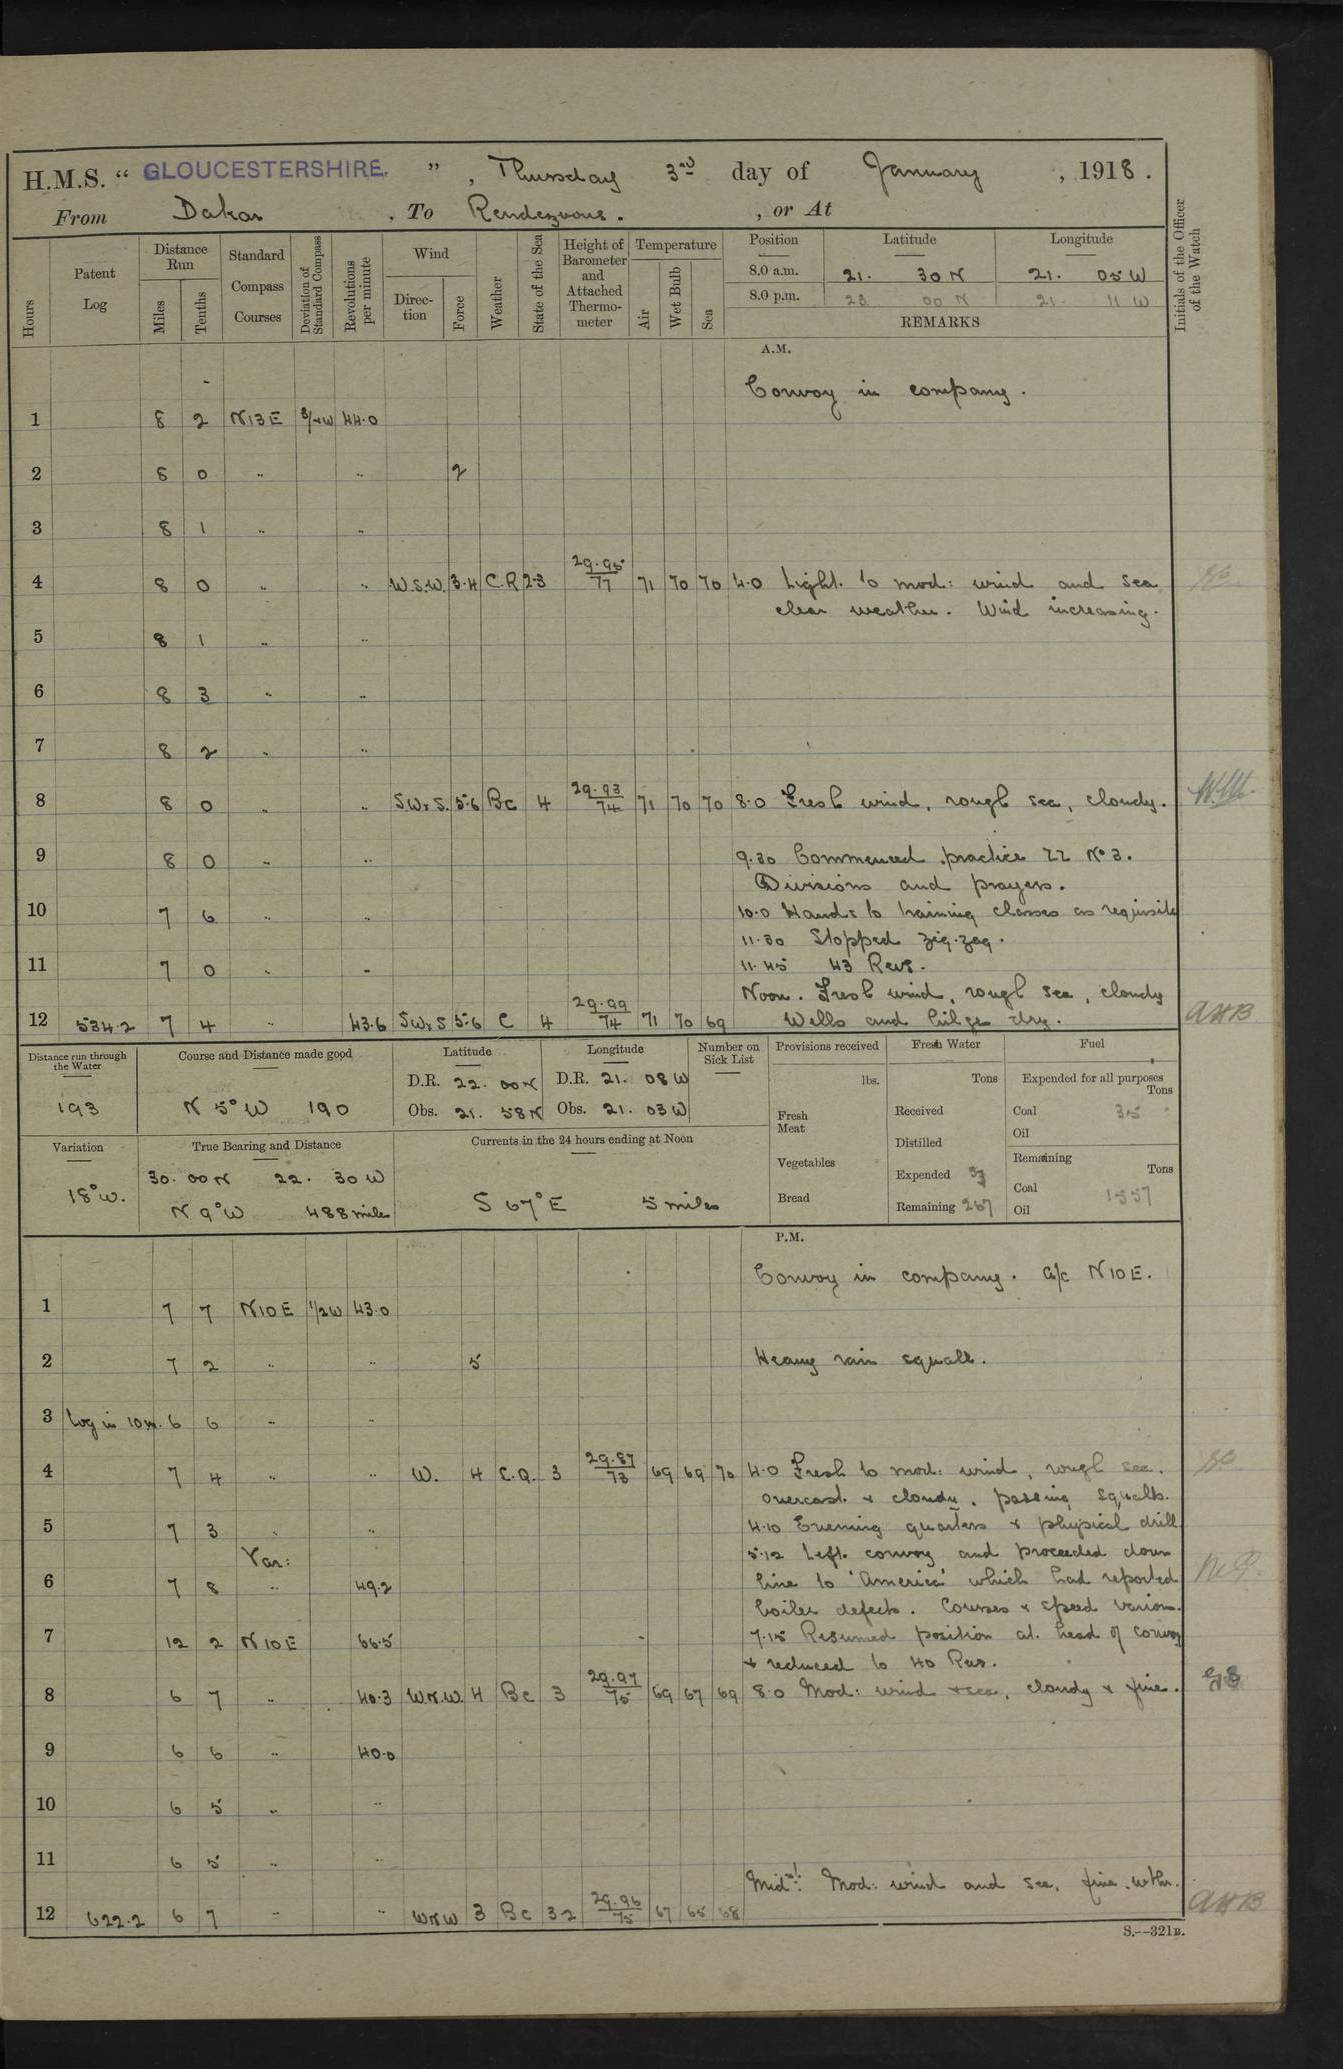 H.M.S. “ GLOUCESTERSHIRE. ” , Thursday 3rd day of January , 1918.
From Dakar , To Rendezvous. , or At
Hours
Patent Log
Distance Run
Miles
Tenths
Standard Compass Courses
Deviation of Standard Compass
Revolutions per minute
Wind
Direc-tion
Force
Weather
State of the Sea
Height of Barometer and Attached Thermo-meter
Temperature
Air
Wet Bulb
Sea
Position Latitude Longitude
8.0 a.m. 21. 30 N 21. 05 W
8.0 p.m. 23 00 N 21. 11 W
REMARKS
Initials of the Officer of the Watch
A.M.
Convoy in company.
1 8 2 N13E 3/4W 44.0
2 8 0 .. .. 2
3 8 1 .. ..
4 8 0 .. .. W.S.W. 3.4 C.R 2.3 29.95/77 71 70 70 4.0 Light to mod: wind and sea
clear weather. Wind increasing.
5 8 1 .. ..
6 8 3 .. ..
7 8 2 .. ..
8 8 0 .. .. SWxS. 5.6 Bc 4 29.93/74 71 70 70 8.0 Fresh wind, rough sea, cloudy.
9 8 0 .. .. 9.30 Commenced practice ZZ No 3.
Divisions and prayers.
10 7 6 .. .. 10.0 Hands to training classes as requisite
11.30 Stopped zig-zag.
11 7 0 .. .. 11.45 43 Revs.
Noon. Fresh wind, rough sea, cloudy
12 534.2 7 4 .. 43.6 SWxS 5.6 C 4 29.99/74 71 70 69 Wells and bilges dry. AHB
Distance run through the Water
193
Course and Distance made good
N 5° W 190
Latitude
D.R. 22. 00 N
Obs. 21. 58 N
Longitude
D.R. 21. 08 W
Obs. 21. 03 W
Number on Sick List
Provisions received
lbs.
Fresh Meat
Vegetables
Bread
Fresh Water
Tons
Received
Distilled
Expended
Remaining 267
Fuel
Expended for all purposes
Tons
Coal 35
Oil
Remaining
Tons
Coal 1557
Oil
Variation
18° W.
True Bearing and Distance
30. 00 N 22. 30 W
N 9° W 488 miles
Currents in the 24 hours ending at Noon
S 67° E 5 miles
P.M.
Convoy in company. a/c N10E.
1 7 7 N10E 1/2W 43.0
2 7 2 .. .. 5 Heavy rain squall.
3 Log in 10m. 6 6 .. ..
4 7 4 .. .. W. 4 C.Q. 3 29.87/73 69 69 70 4.0 Fresh to mod: wind, rough sea.
overcast & cloudy, passing squalls.
5 7 3 .. .. 4.10 Evening quarters & physical drill
Var: 5.12 Left convoy and proceeded down
6 7 8 .. 49.2 line to 'America' which had reported
boiler defects. Courses & speed various.
7 12 2 N10E 66.5 7.15 Resumed position at head of convoy
& reduced to 40 Revs.
8 6 7 .. 40.3 WNW. 4 Bc 3 29.97/75 69 67 69 8.0 Mod: wind & sea, cloudy & fine.
9 6 6 .. 40.0
10 6 5 .. ..
11 6 5 .. ..
Midnt: Mod: wind and sea, fine wthr.
12 622.2 6 7 .. .. WNW 3 Bc 32 29.96/75 67 65 68 AHB
S.--321B.